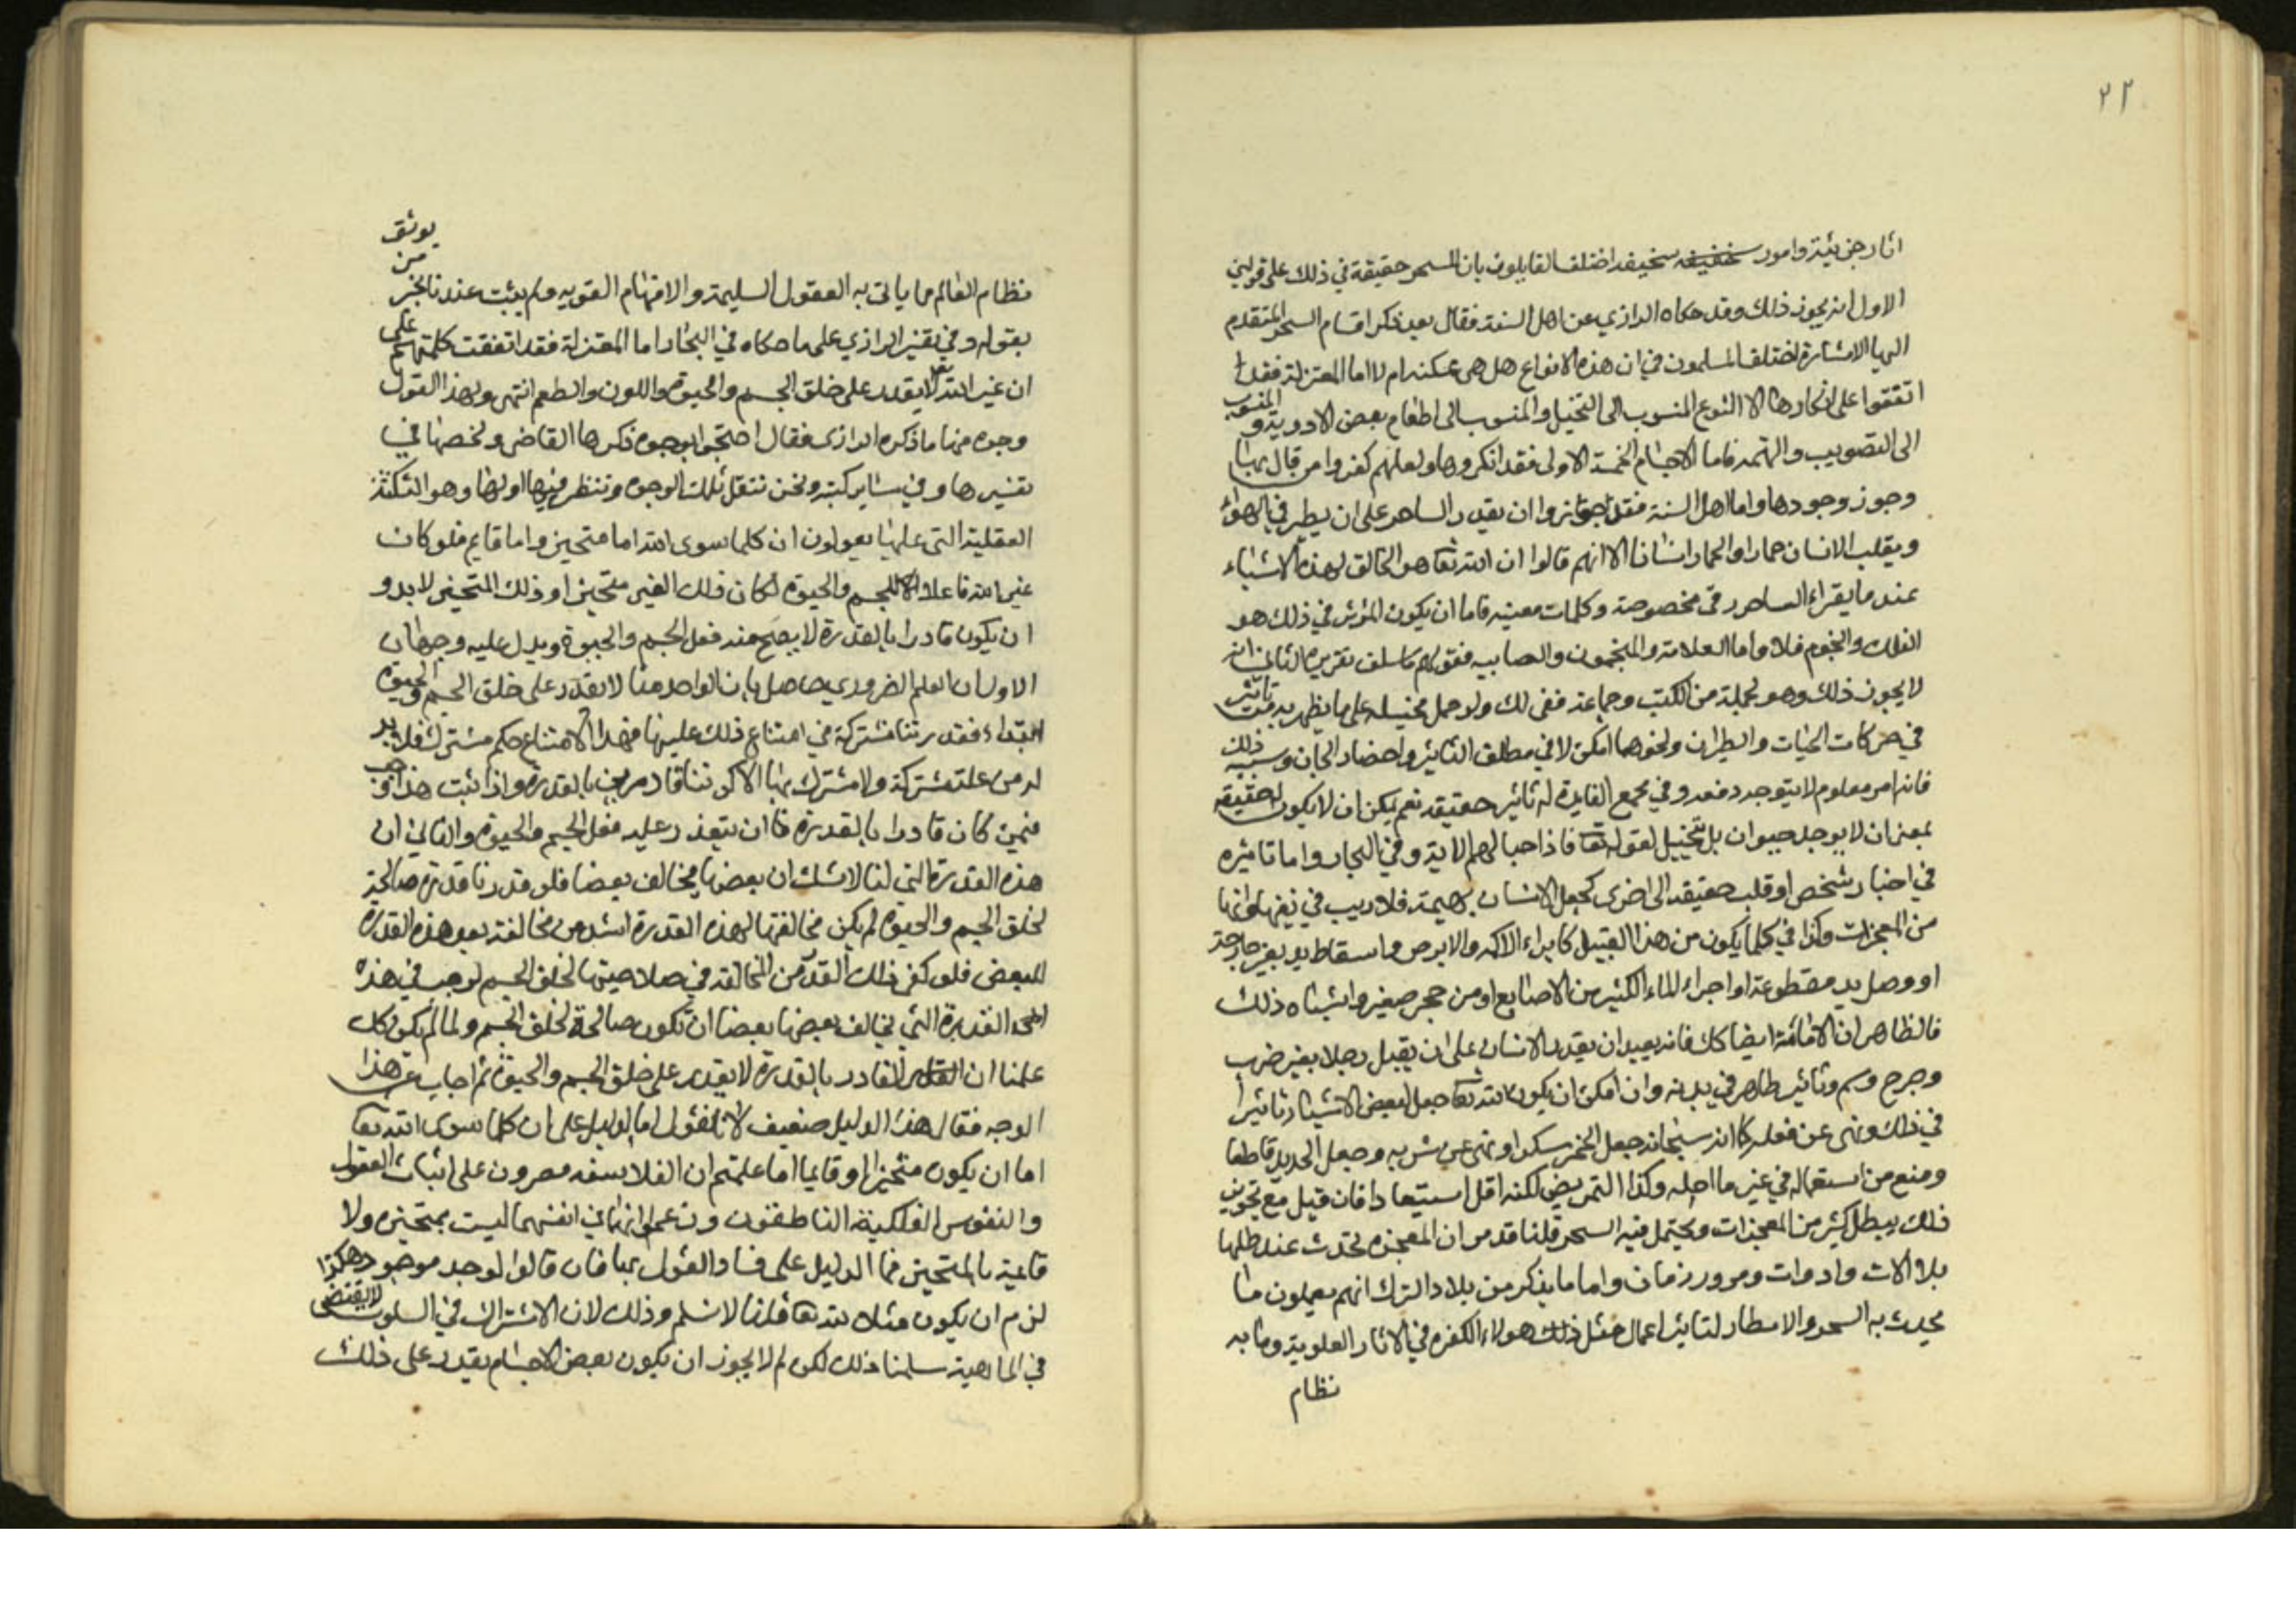 ٢٢
اثار جزئية وامور سخيفه سخيفه اختلف القايلون بان السحر حقيقة في ذلك على قولين
الاول انه يجوز ذلك وقد حكاه الرازي عن اهل السنة فقال بعد ذكر اقسام السحر المتقدم
اليها الاشارة اختلف المسلمون في ان هذه الانواع هل هي ممكنة ام لا اما المعتزلة فقد
اتفقوا على انكارها الا النوع المنسوب الى التخيل والمنسوب الى اطعام بعض الادوية والمنسوب
الى التضريب والنميمة فاما الاقسام الخمسة الاولى فقد انكروها ولعلهم كفروا من قال بها
وجوز وجودها واما اهل السنة فقد جوزوا ان يقدر الساحر على ان يطير في الهواء
ويقلب الانسان حمارا والحمار انسانا الا انهم قالوا ان الله تعا هو الخالق لهذه الاشياء
عند ما يقراء الساحر رقى مخصوصة وكلمات معينه فاما ان يكون المؤثر في ذلك هو
الفلك والنجوم فلا واما الفلاسفة والمنجمون والصابيه فقولهم ما سلف تقريره الثاني انه
لا يجوز ذلك وهو لجملة من الكتب وجماعة ففي لك ولو حمل تخييله على ما يظهر به تاثير
في حركات الحيات والطيران ونحوهما امكن لا في مطلق التاثير واحضار الجان وشبه ذلك
فانه امر معلوم لا يتوجه دفعه وفي مجمع الفايدة له تاثير حقيقه نعم يمكن ان لا يكون له حقيقه
بمعنى ان لا يوجد حيوان بل تخييل لقوله تعا فاذا حبالهم الاية وفي البحار واما تاثيره
في احياء شخص او قلب حقيقه الى اخرى كجعل الانسان بهيمة فلا ريب في نفيهما وانهما
من المعجزات وكذا في كلما يكون من هذا القبيل كابراء الاكمه والابرص واسقاط يد بغير جارحة
او وصل يد مقطوعة او اجراء الماء الكثير من الاصابع او من حجر صغير واشباه ذلك
فالظاهر ان الاماتة ايضا كك فانه بعيد ان يقدر الانسان على ان يقتل رجلا بغير ضرب
وجرح وسم وتاثير ظاهر في بدنه وان امكن ان يكون الله تعا جعل لبعض الاشياء تاثيرا
في ذلك ونهى عن فعله كما انه سبحانه جعل الخمر مسكرا ونهى عن شربه وجعل الحديد قاطعا
ومنع من استعماله في غير ما احله وكذا التمريض لكنه اقل استبعادا فان قيل مع تجويز
ذلك يبطل كثير من المعجزات ويحتمل فيه السحر قلنا قد مر ان المعجزة تحدث عند طلبها
بلا الات وادوات ومرور زمان واما ما يذكر من بلاد الترك انهم يعملون ما
يحدث به السحب والامطار لتاثير اعمال مثل ذلك هولاء الكفره في الاثار العلوية وما به
نظام
نظام العالم مما يابى به العقول السليمة والافهام القويه ولم يثبت عندنا بخبر من يوثق
بقوله وفي تفسير الرازي على ما حكاه في البحار اما المعتزلة فقد اتفقت كلمتهم على
ان غير الله تعا لا يقدر على خلق الجسم والحيوة واللون والطعم انتهى ولهذا القول
وجوه منها ما ذكره الرازي فقال احتجوا بوجوه ذكرها القاضي ولخصها في
تفسيرها وفي ساير كتبه ونحن ننقل تلك الوجوه وننظر فيها اولها وهو النكتة
العقلية التي عليها يعولون ان كلما سوى الله اما متحيز واما قايم فلو كان
غير الله فاعلا للجسم والحيوة لكان ذلك الغير متحيزا وذلك المتحيز لا بد و
ان يكون قادرا بالقدرة لا يصح منه فعل الجسم والحيوة ويدل عليه وجهان
الاول ان العلم الضروري حاصل بان الواحد منا لا يقدر على خلق الجسم والحيوة
ابتداء فقدرتنا مشتركة في امتناع ذلك عليها فهذا الامتناع حكم مشترك فلا بد
له من علة مشتركة ولا مشترك بها الا كوننا قادرين بالقدرة واذا ثبت هذا وجب
فيمن كان قادرا بالقدرة ان يتعذر عليه فعل الجسم والحيوة والثاني ان
هذه القدرة التي لنا لا شك ان بعضها يخالف بعضا فلو قدرنا قدرة صالحة
لخلق الجسم والحيوة لم يكن مخالفتها لهذه القدرة اشد من مخالفة بعض هذه القدرة
للبعض فلو كفى ذلك القدر من المخالفة في صلاحيتها لخلق الجسم لوجب في هذه
القدرة التي يخالف بعضها بعضا ان تكون صالحة لخلق الجسم ولما لم يكن كك
علمنا ان القادر بالقدرة لا يقدر على خلق الجسم والحيوة ثم اجاب عن هذا
الوجه فقال هذا الدليل ضعيف لانا نقول ما الدليل على ان كلما سوى الله تعا
اما ان يكون متحيزا او قايما اما علمتم ان الفلاسفه مصرون على اثبات العقول
والنفوس الفلكية الناطقون وزعموا انها في انفسها ليست بمتحيزة ولا
قاعية بالمتحيز فما الدليل على فساد القول بها فان قالوا لو وجد موجود هكذا
لزم ان يكون مثلا لله تعا قلنا لا نسلم وذلك لان الاشتراك في السلوب لا يقتضى
في الماهية سلمنا ذلك لكن لم لا يجوز ان يكون بعض الاجسام يقدر على ذلك